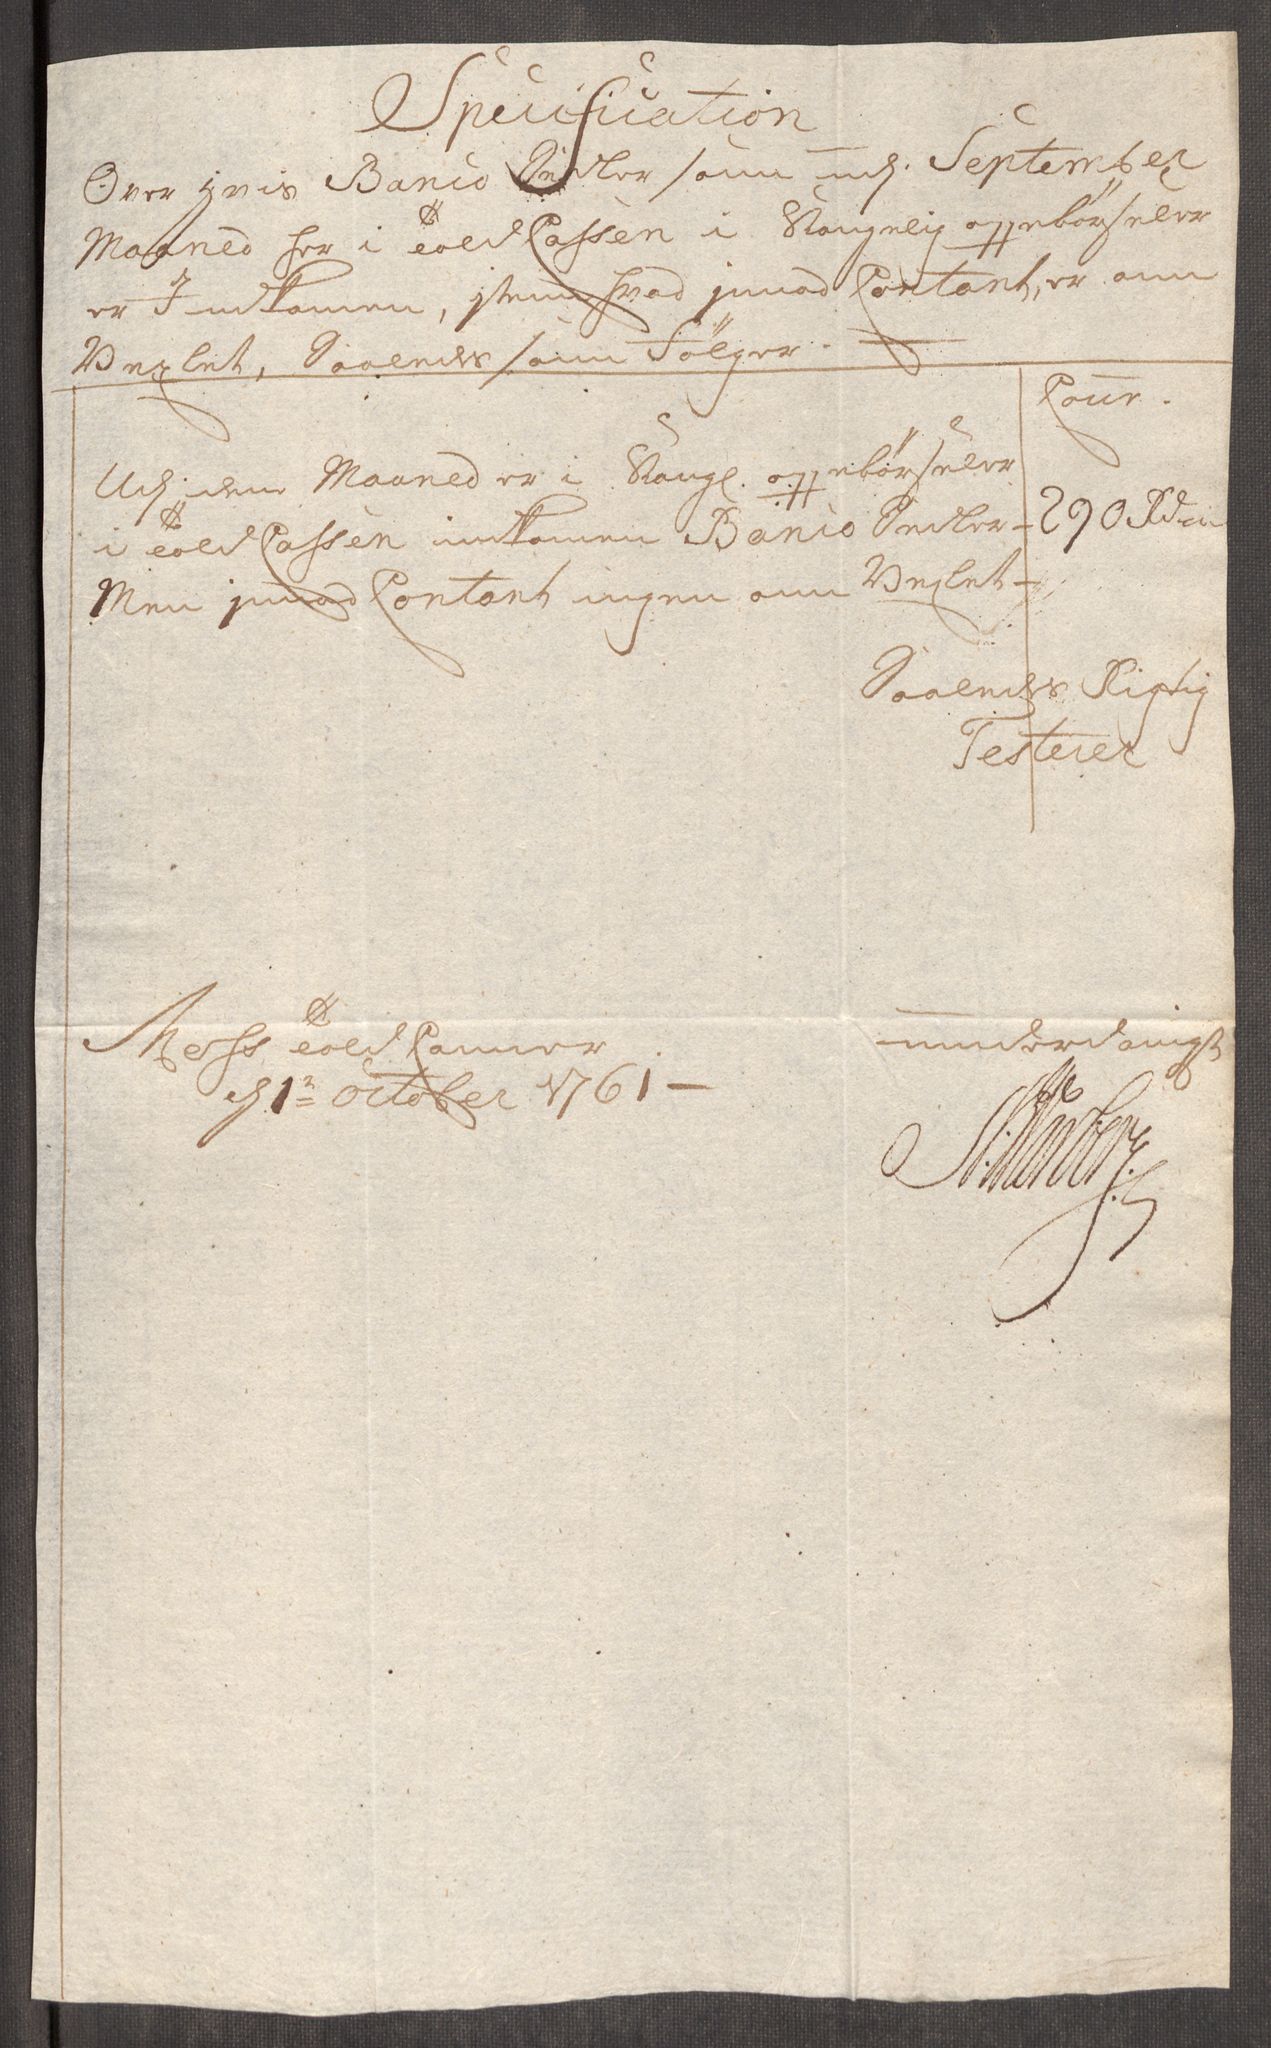 Specification
Over hvis Banco Sedler som udj. September
Maaned her i Told Cassen i Kongelig oppebörseler
er Indkomen, item hvad imod Contant, er om
Vexlet, Saaledes som Fölger.
Cour.
Udj. denne Maaned er i Kongl. oppebörseler
i Told Cassen indkomen Banco Sedler - 290 Rd
Men imod Contant ingen om Vexlet -
Saaledes Rigtig
Testerer
Told Cammer
d 1 October 1761 -
underdanigst